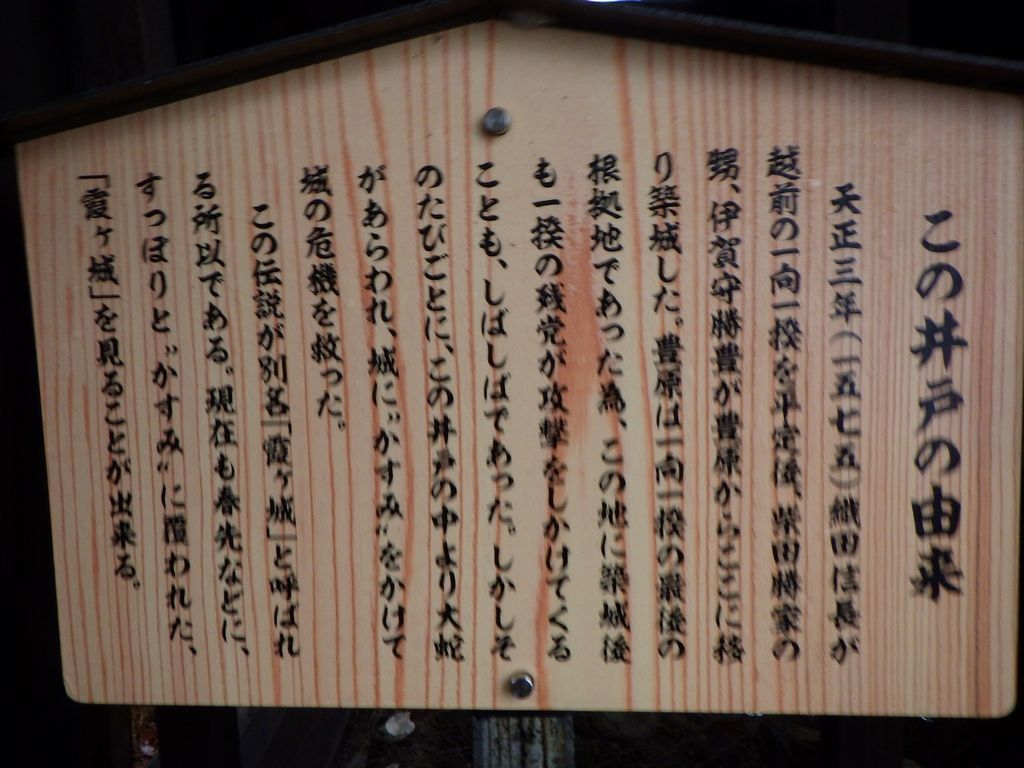 この井戸の由来
天正三年(一五七五)織田信長が
越前の一向一揆を平定後、柴田勝家の
甥、伊賀守勝豊が豊原からここに移
り築城した。豊原は一向一揆の最後の
根拠地であった為、この地に築城後
も一揆の残党が攻撃をしかけてくる
ことも、しばしばであった。しかしそ
のたびごとに、この井戸の中より大蛇
があらわれ、城に〝かすみ〟をかけて
城の危機を救った。
この伝説が別名「霞ヶ城」と呼ばれ
る所以である。現在も春先などに、
すっぽりと〝かすみ〟に覆われた、
「霞ヶ城」を見ることが出来る。